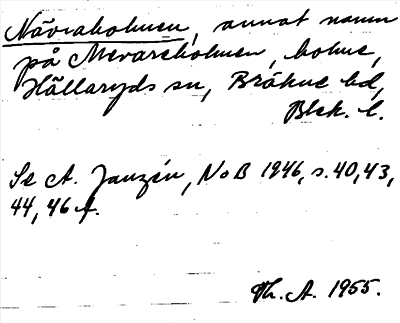 Näveaholmen, annat namn
på Mevareholmen, holme,
Hällaryds sn, Bräkne hd,
Blek. l.
Se A. Janzén, NoB 1946, s. 40, 43,
44, 46 f.
Th. A. 1955.